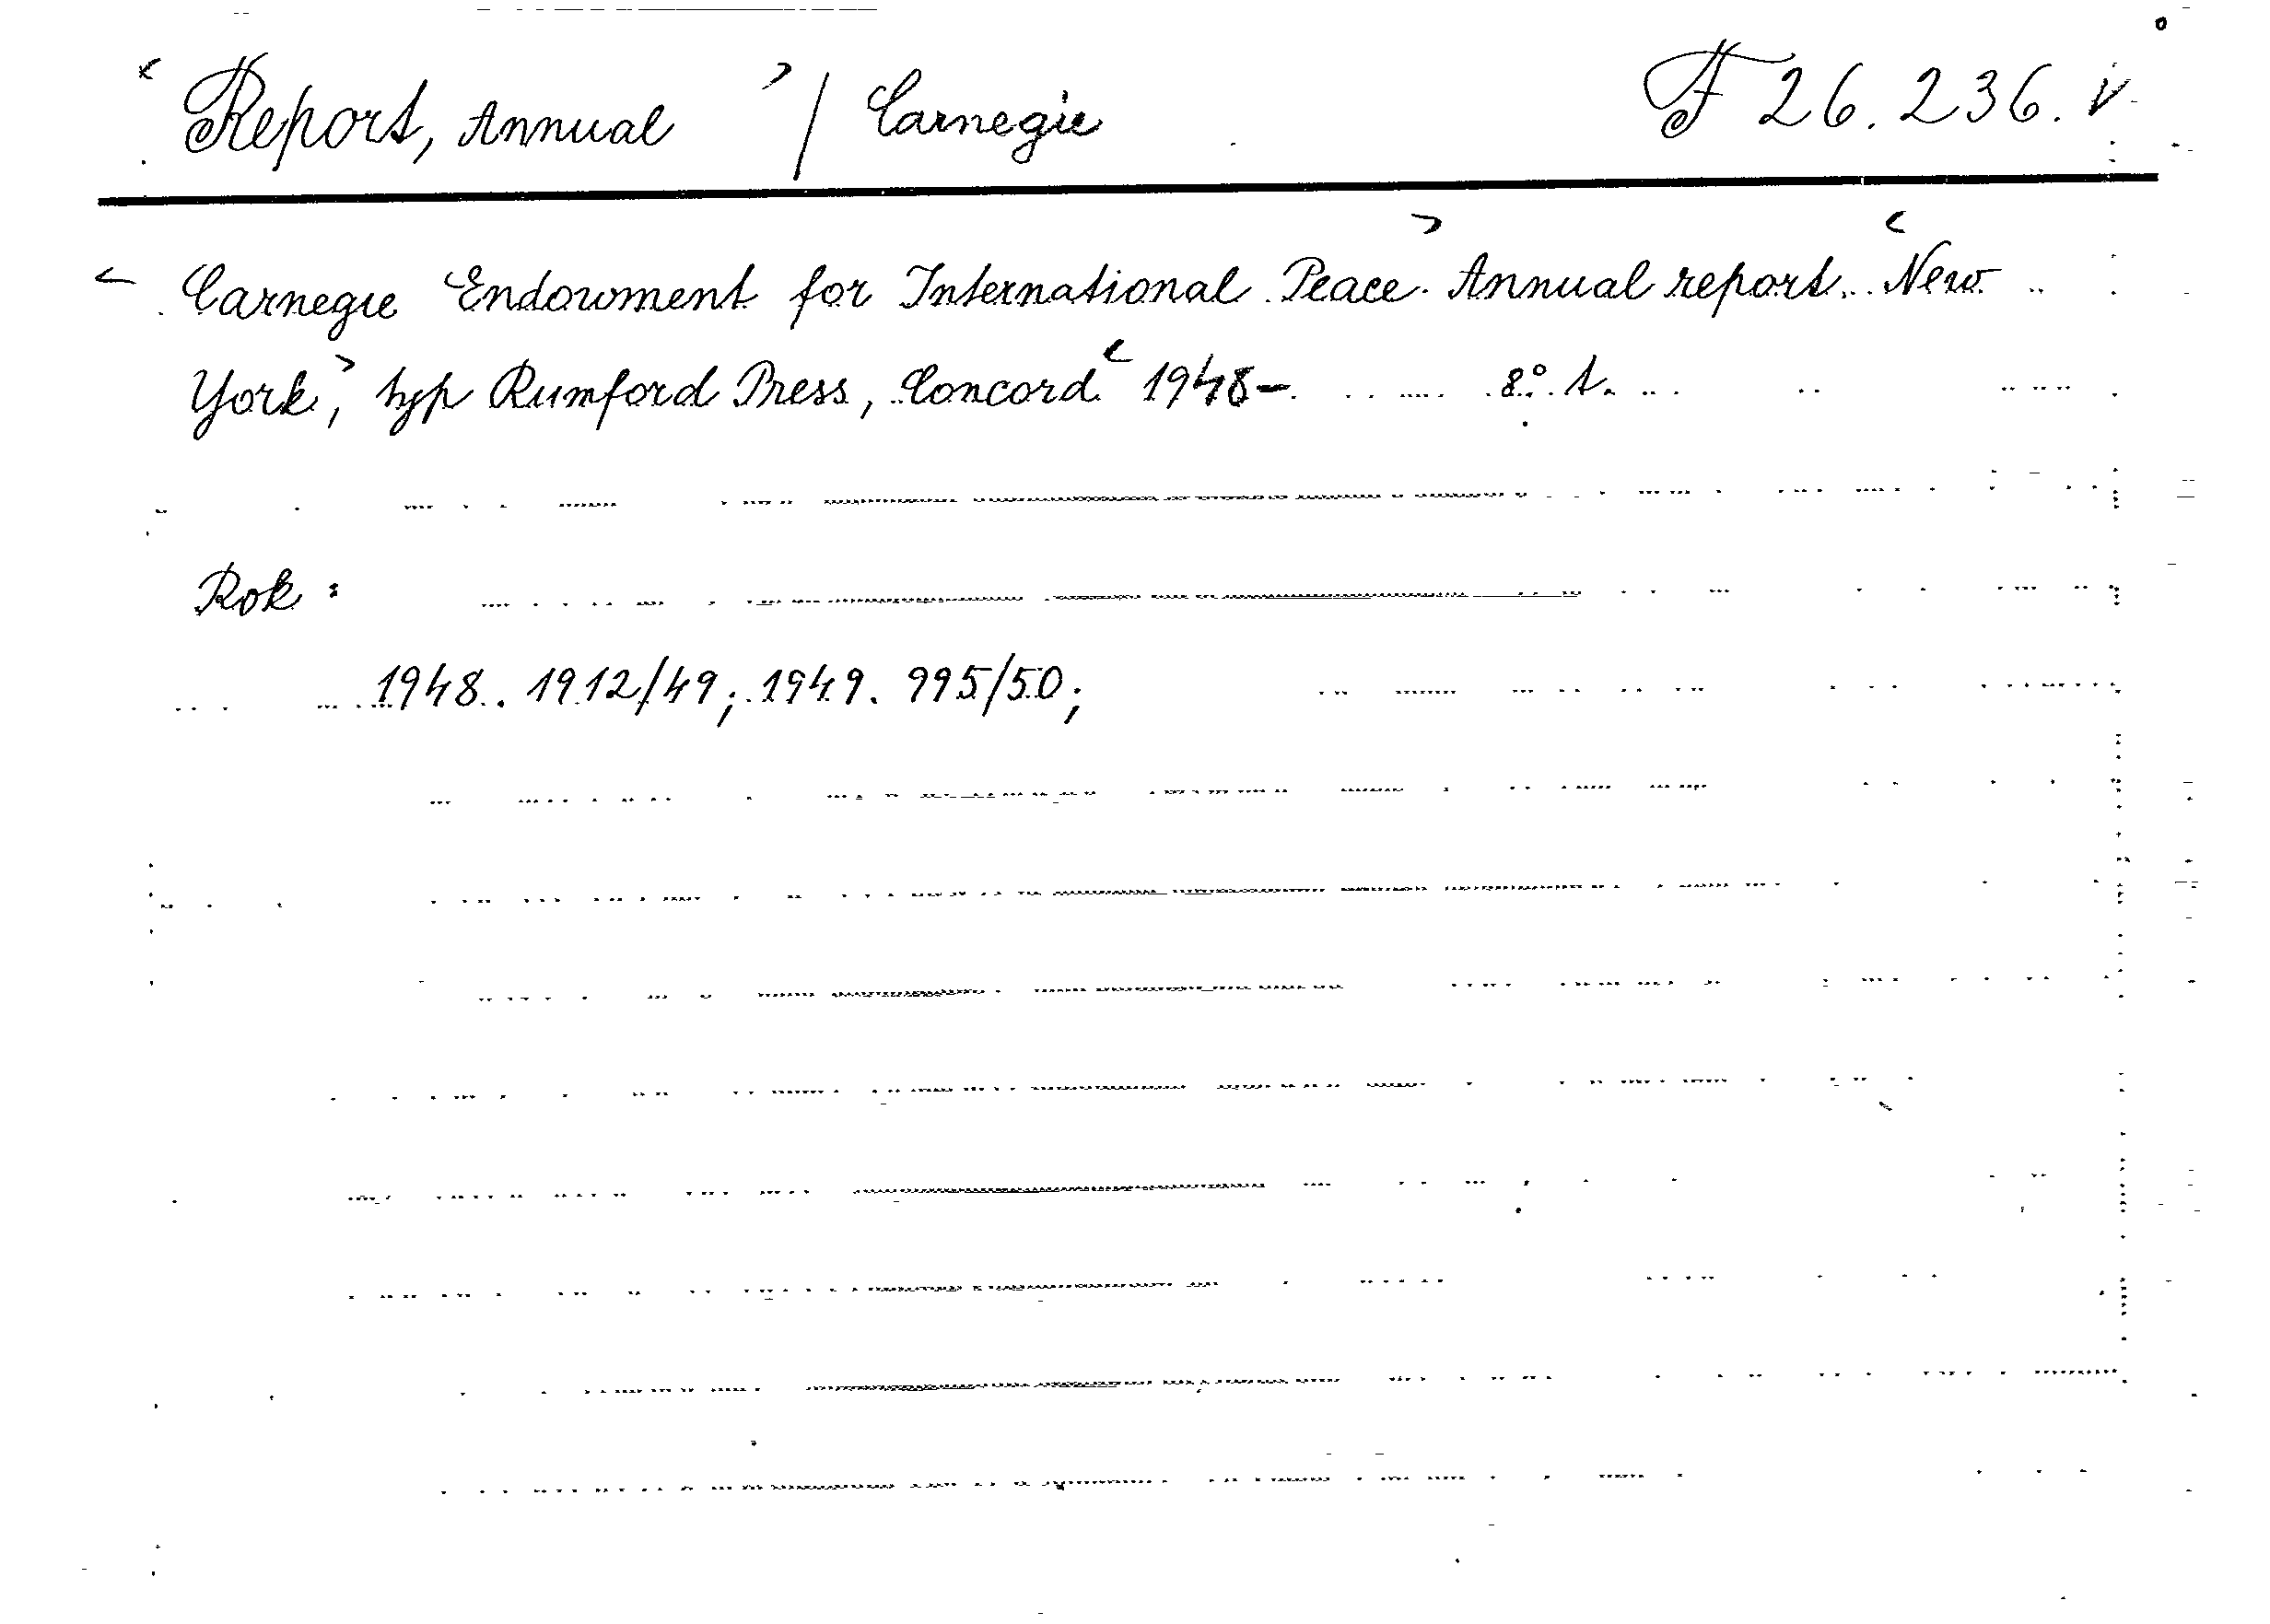 < Report, Annual > / Carnegie F 26.236. V
< Carnegie Endowment for International Peace.> Annual report. <New
York,> typ Rumford Press, Concord< 1948- 8° t.
Rok :
1948. 1912/49; 1949. 995/50;